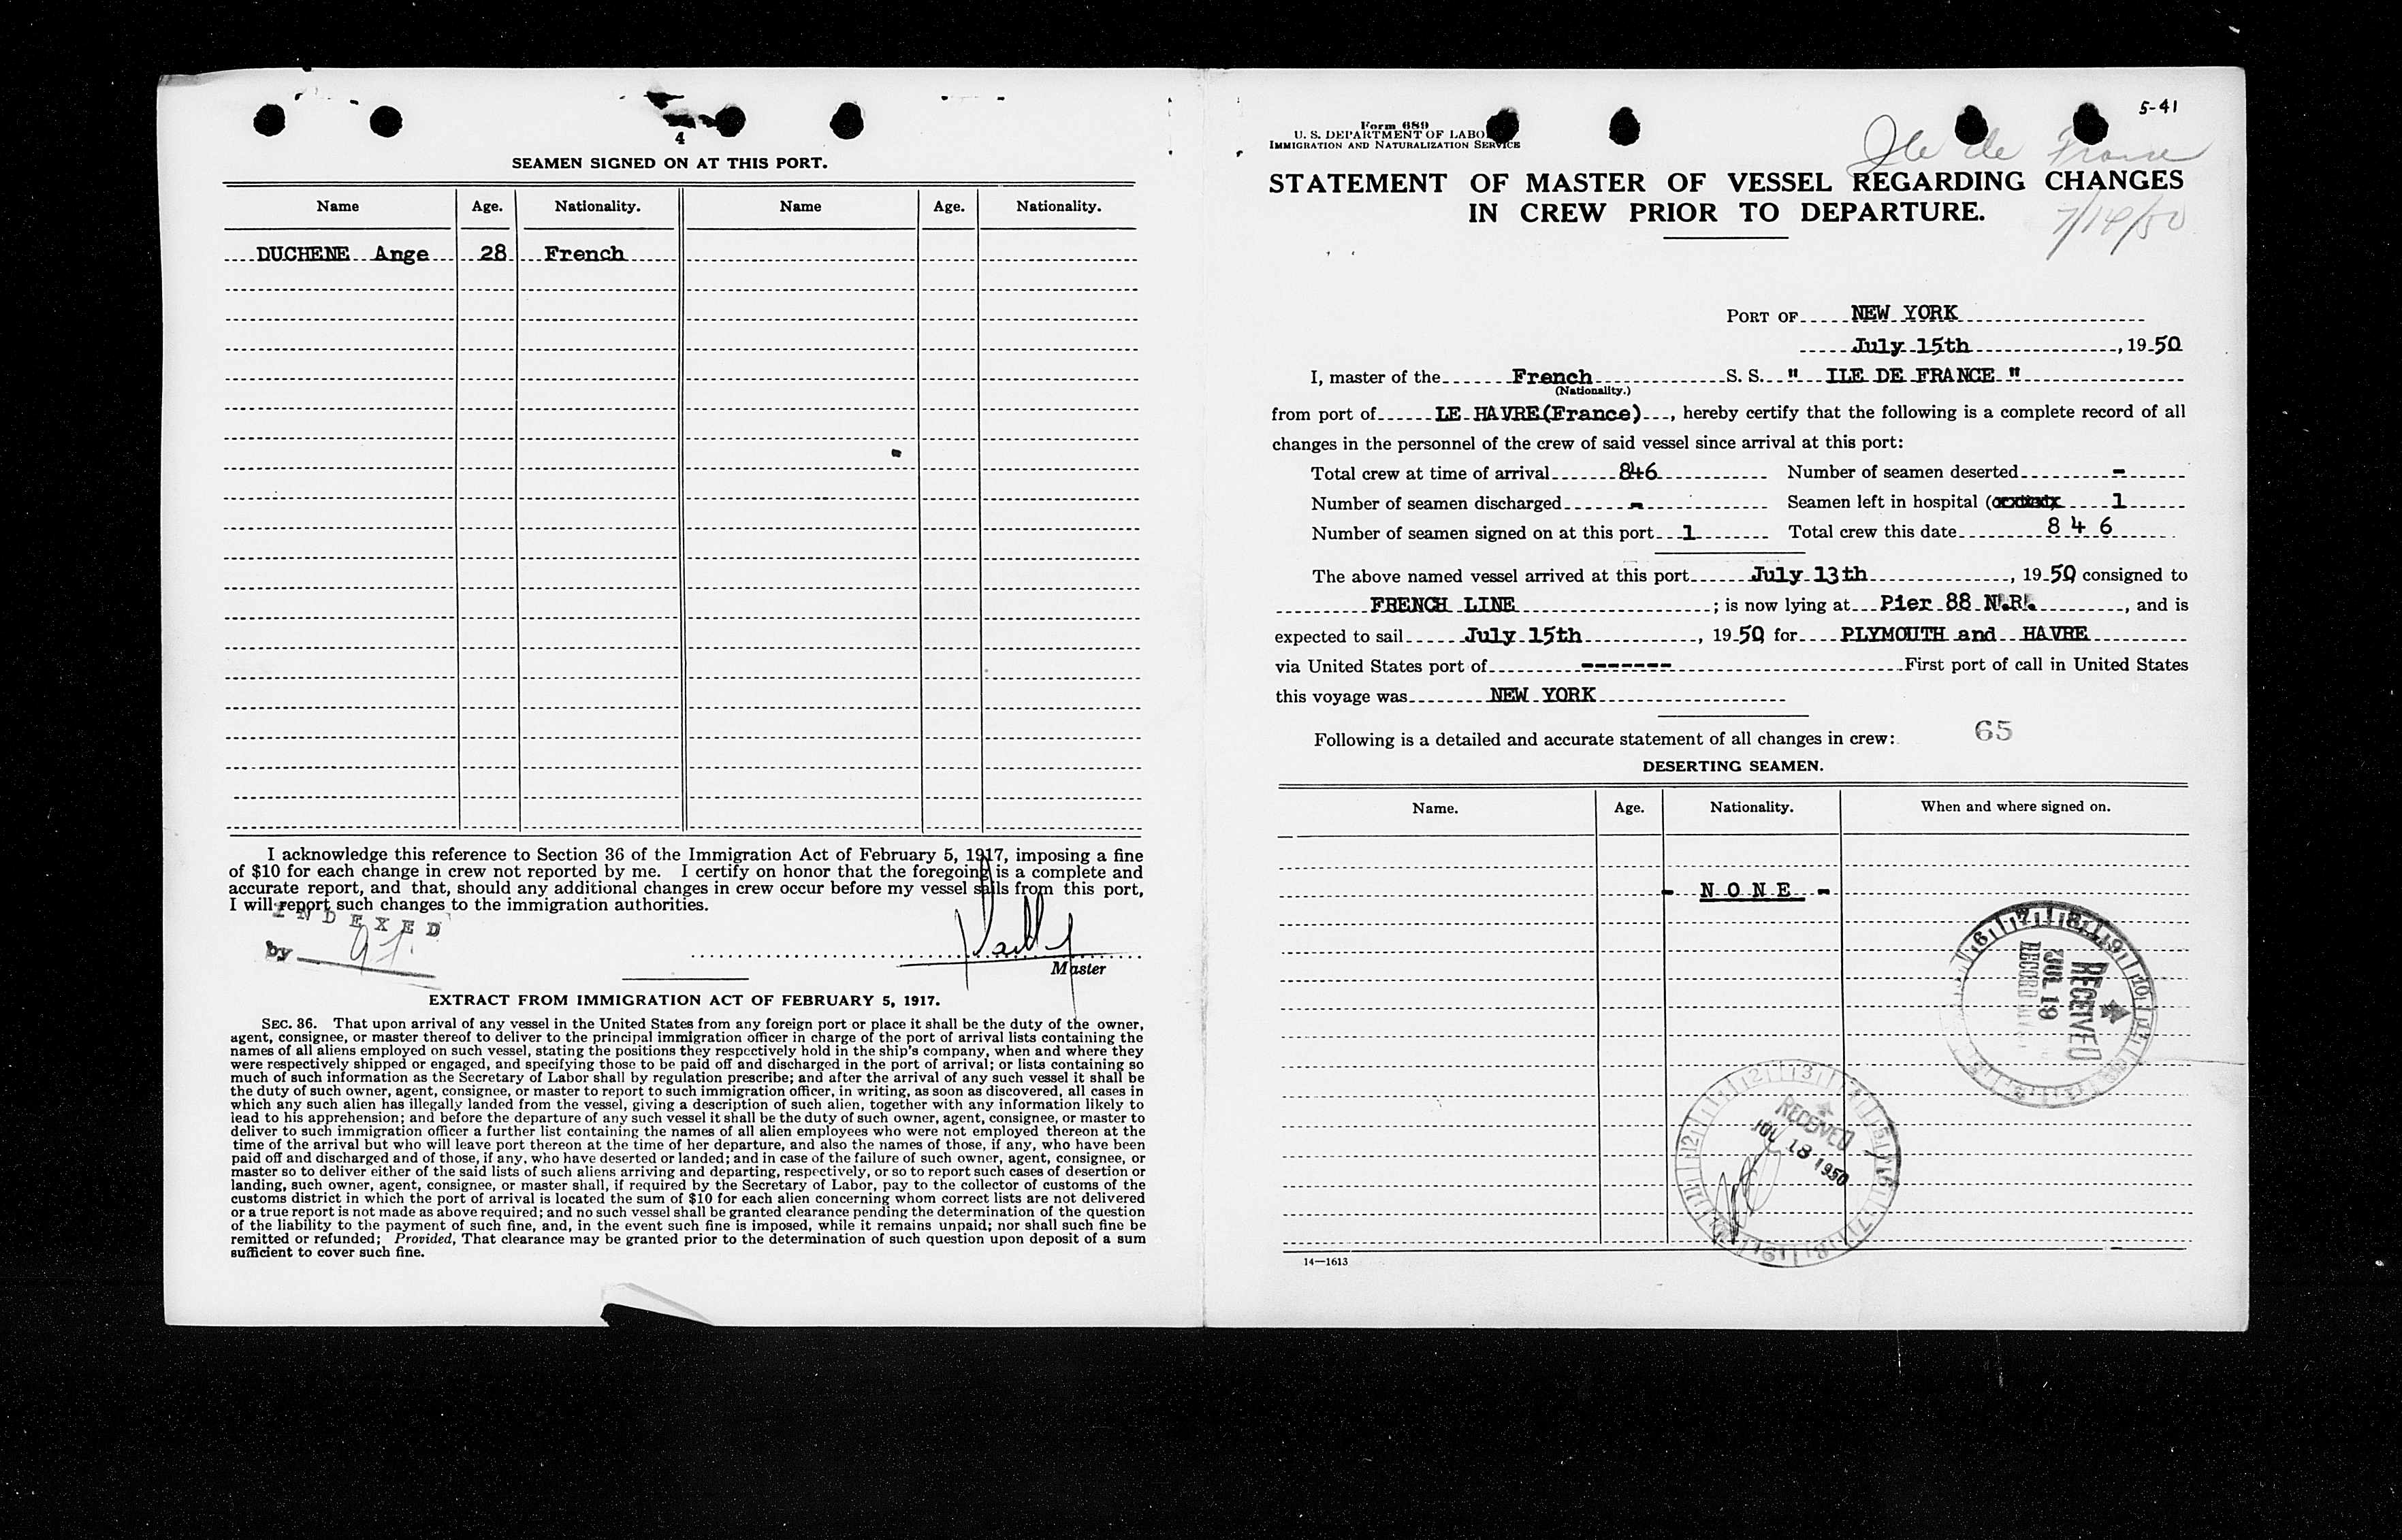 4
SEAMEN SIGNED ON AT THIS PORT.
Name Age. Nationality. Name Age. Nationality.
DUCHENE Ange 28 French
I acknowledge this reference to Section 36 of the Immigration Act of February 5, 1917, imposing a fine
of $10 for each change in crew not reported by me. I certify on honor that the foregoing is a complete and
accurate report, and that, should any additional changes in crew occur before my vessel sails from this port,
I will report such changes to the immigration authorities.
INDEXED
by
Master
EXTRACT FROM IMMIGRATION ACT OF FEBRUARY 5, 1917.
SEC. 36. That upon arrival of any vessel in the United States from any foreign port or place it shall be the duty of the owner,
agent, consignee, or master thereof to deliver to the principal immigration officer in charge of the port of arrival lists containing the
names of all aliens employed on such vessel, stating the positions they respectively hold in the ship's company, when and where they
were respectively shipped or engaged, and specifying those to be paid off and discharged in the port of arrival; or lists containing so
much of such information as the Secretary of Labor shall by regulation prescribe; and after the arrival of any such vessel it shall be
the duty of such owner, agent, consignee, or master to report to such immigration officer, in writing, as soon as discovered, all cases in
which any such alien has illegally landed from the vessel, giving a description of such alien, together with any information likely to
lead to his apprehension; and before the departure of any such vessel it shall be the duty of such owner, agent, consignee, or master to
deliver to such immigration officer a further list containing the names of all alien employees who were not employed thereon at the
time of the arrival but who will leave port thereon at the time of her departure, and also the names of those, if any, who have been
paid off and discharged and of those, if any, who have deserted or landed; and in case of the failure of such owner, agent, consignee, or
master so to deliver either of the said lists of such aliens arriving and departing, respectively, or so to report such cases of desertion or
landing, such owner, agent, consignee, or master shall, if required by the Secretary of Labor, pay to the collector of customs of the
customs district in which the port of arrival is located the sum of $10 for each alien concerning whom correct lists are not delivered
or a true report is not made as above required; and no such vessel shall be granted clearance pending the determination of the question
of the liability to the payment of such fine, and, in the event such fine is imposed, while it remains unpaid; nor shall such fine be
remitted or refunded; Provided, That clearance may be granted prior to the determination of such question upon deposit of a sum
sufficient to cover such fine.
5-41
Form 689
U. S. DEPARTMENT OF LABOR
IMMIGRATION AND NATURALIZATION SERVICE
Ile de France
STATEMENT OF MASTER OF VESSEL REGARDING CHANGES
IN CREW PRIOR TO DEPARTURE.
7/14/50
PORT OF NEW YORK
July 15th, 1950
I, master of the French S. S. " ILE DE FRANCE "
(Nationality.)
from port of LE HAVRE(France), hereby certify that the following is a complete record of all
changes in the personnel of the crew of said vessel since arrival at this port:
Total crew at time of arrival 846 Number of seamen deserted -
Number of seamen discharged - Seamen left in hospital ( 1
Number of seamen signed on at this port 1 Total crew this date 8 4 6
The above named vessel arrived at this port July 13th, 1950 consigned to
FRENCH LINE; is now lying at Pier 88 N.R., and is
expected to sail July 15th, 1950 for PLYMOUTH and HAVRE
via United States port of ------- First port of call in United States
this voyage was NEW YORK
Following is a detailed and accurate statement of all changes in crew: 65
DESERTING SEAMEN.
Name. Age. Nationality. When and where signed on.
- N O N E -
RECEIVED
JUL 19
RECORD
RECEIVED
JUL 18 1950
14—1613